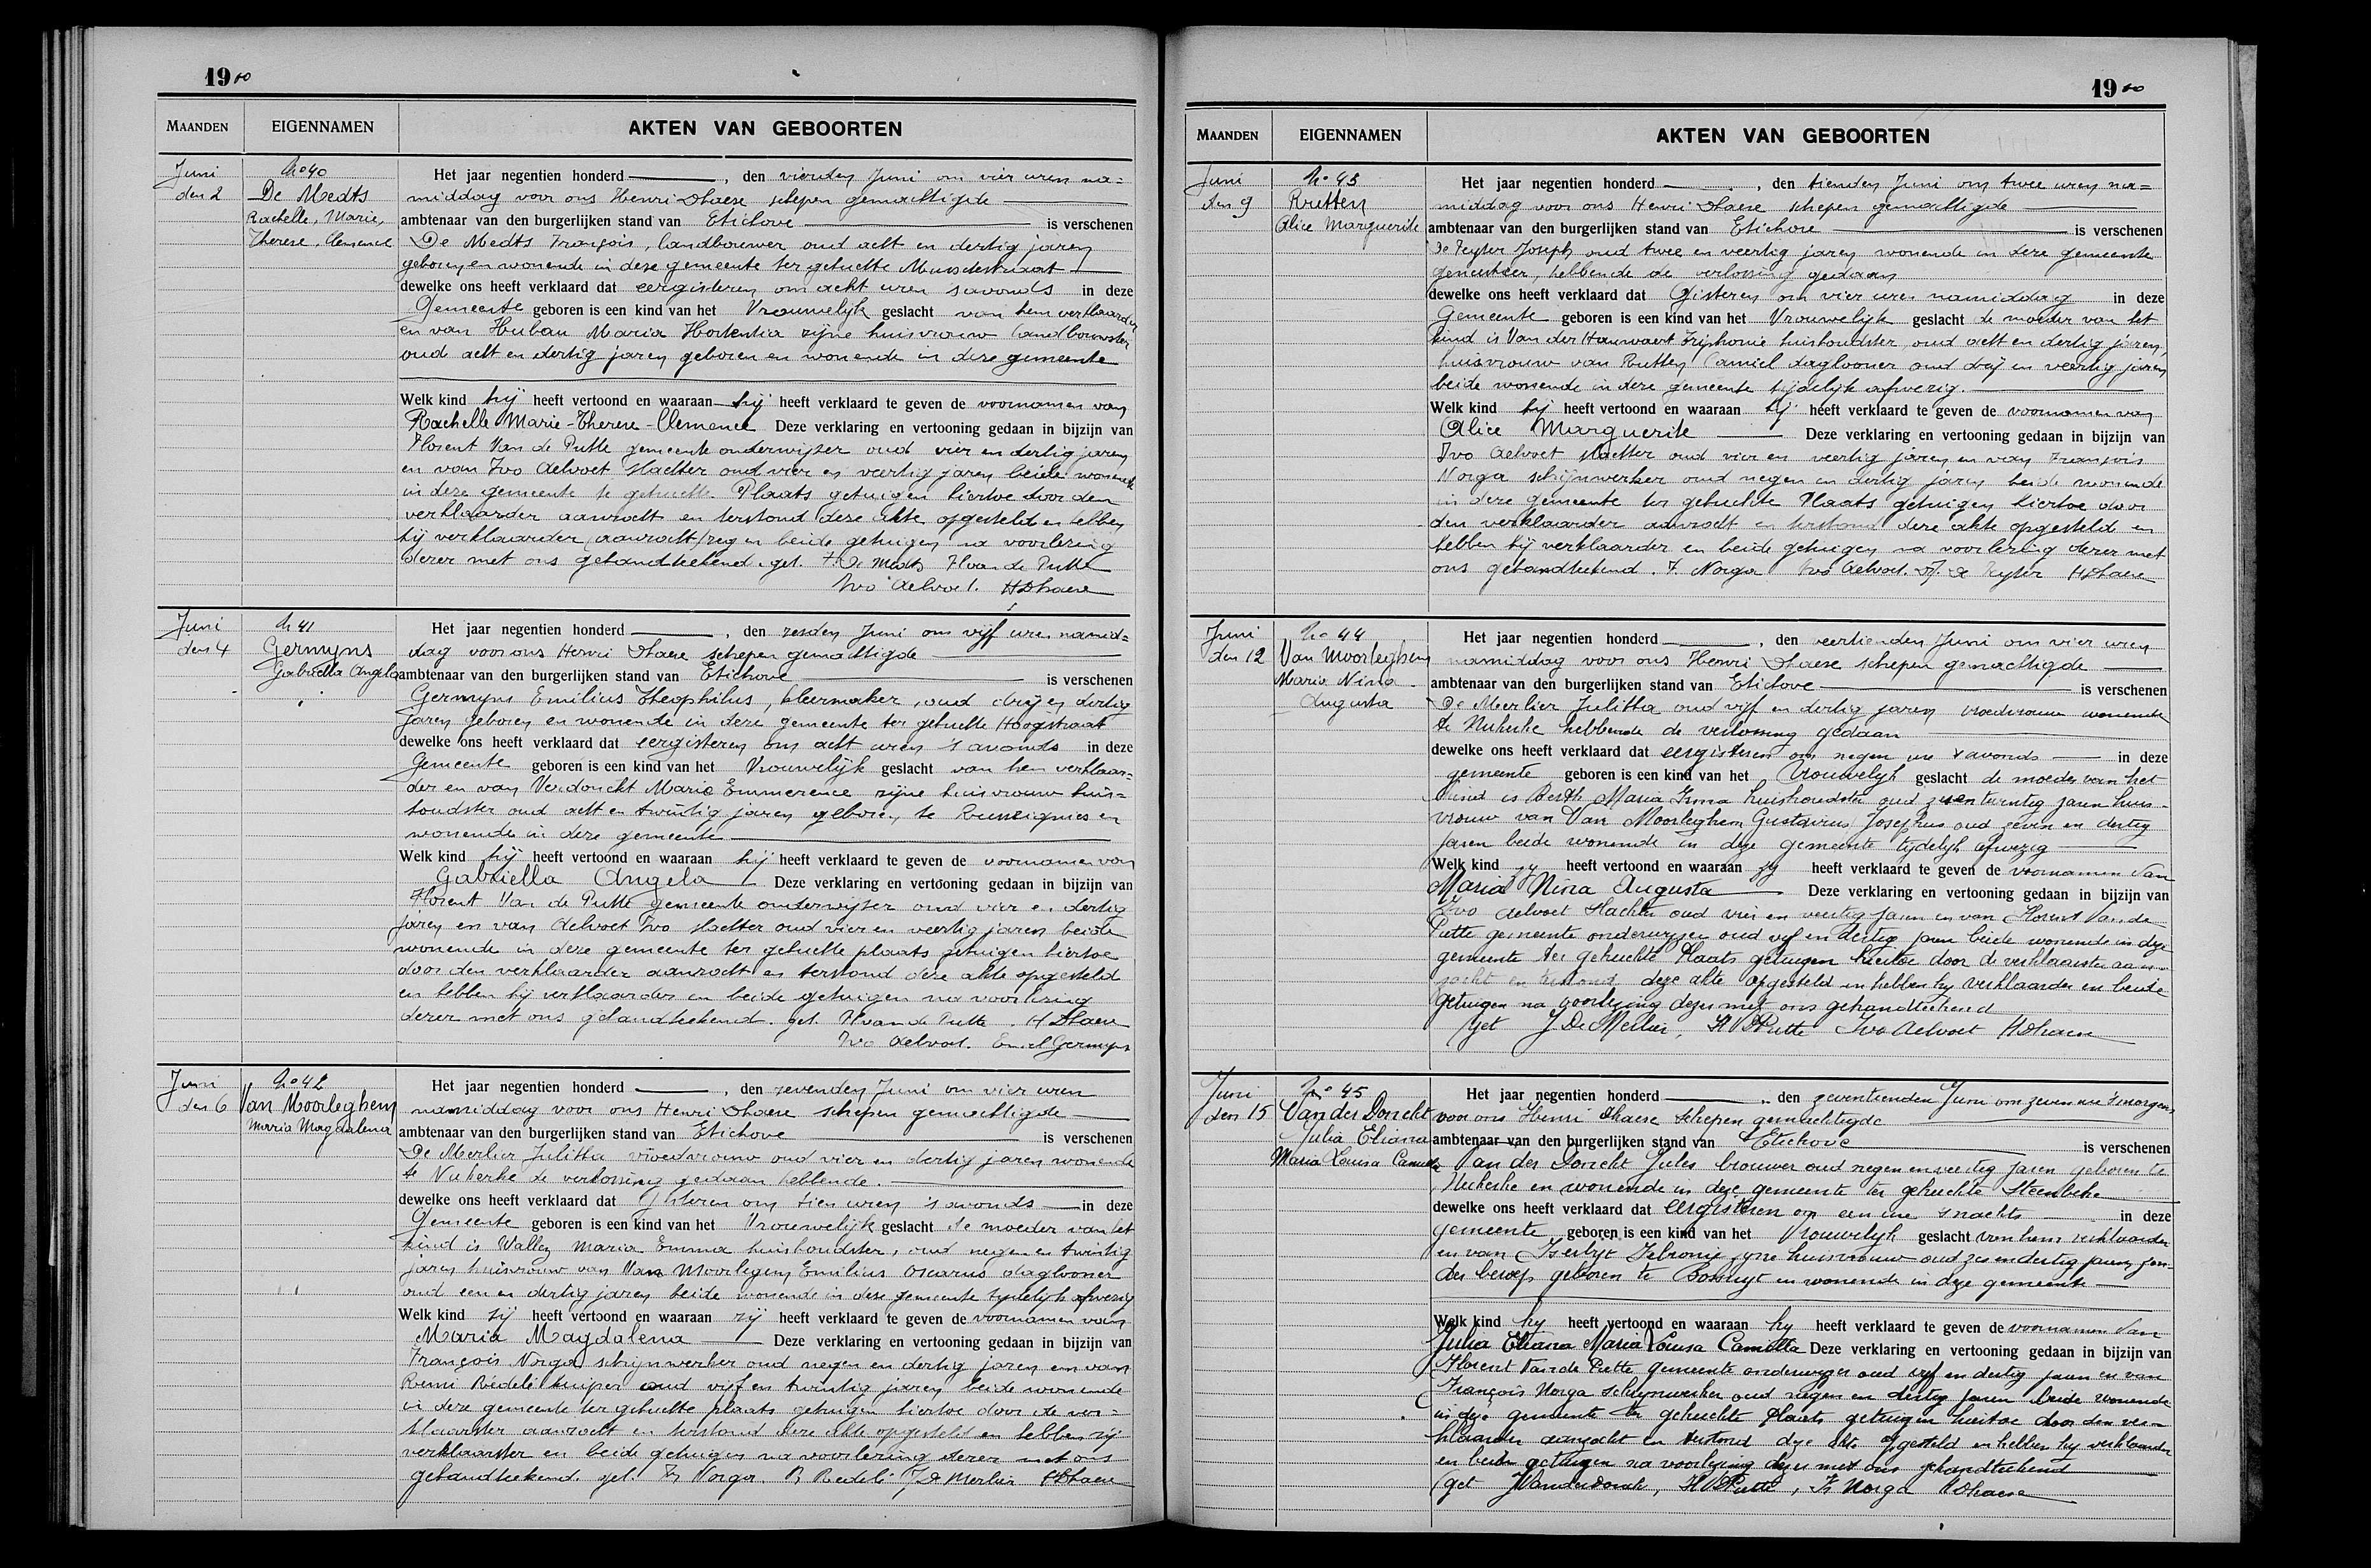 1900
MAANDEN EIGENNAMEN AKTEN VAN GEBOORTEN
Juni
den 2
No 40
De Medts
Rachelle, Marie,
Therese, Clemence
Het jaar negentien honderd ———, den vierden Juni om vier uren na=
middag voor ons Henri Dhaese schepen gemachtigde
ambtenaar van den burgerlijken stand van Etichove is verschenen
De Medts François, landbouwer oud acht en dertig jaren
geboren en wonende in deze gemeente ter gehuchte
dewelke ons heeft verklaard dat eergisteren om acht uren s'avonds in deze
Gemeente geboren is een kind van het Vrouwelijk geslacht van hem verklaarder
en van Huban Maria Hortentia zijne huisvrouw landbouwster
oud acht en dertig jaren geboren en wonende in deze gemeente
Welk kind hij heeft vertoond en waaraan hij heeft verklaard te geven de voornamen van
Rachelle Marie-Therese-Clemence Deze verklaring en vertooning gedaan in bijzijn van
Florent Van de Putte gemeente onderwijzer oud vier en dertig jaren
en van Ivo Aelvoet slachter oud vier en veertig jaren beide wonende
in deze gemeente te gehuchte Plaats getuigen hiertoe door den
verklaarder aanzocht en terstond deze akte opgesteld en hebben
hij verklaarder (aanzocht) zegen beide getuigen na voorlezing
dezer met ons gehandteekend. get. F. De Medts Fl van de Putte
Ivo Aelvoet. HDhaese
Juni
den 4
N 41
Germyns
Gabriella Angela
Het jaar negentien honderd ———, den zesden Juni om vijf uren namid=
dag voor ons Henri Dhaese schepen gemachtigde
ambtenaar van den burgerlijken stand van Etichove is verschenen
Germyns Emilius Theophilus, kleermaker, oud drij en dertig
jaren geboren en wonende in deze gemeente ter gehuchte Hoogstraat
dewelke ons heeft verklaard dat eergisteren om acht uren 's avonds in deze
Gemeente geboren is een kind van het Vrouwelijk geslacht van hem verklaar=
der en van Verdonckt Marie Emmerence zijne huisvrouw huis=
houdster oud acht en twintig jaren geboren te Russeignies en
wonende in deze gemeente
Welk kind hij heeft vertoond en waaraan hij heeft verklaard te geven de voornamen van
Gabriella Angela Deze verklaring en vertooning gedaan in bijzijn van
Florent Van de Putte gemeente onderwijzer oud vier en dertig
jaren en van Aelvoet Ivo slachter oud vier en veertig jaren beide
wonende in deze gemeente ter gehuchte plaats getuigen hiertoe
door den verklaarder aanzocht en terstond deze akte opgesteld
en hebben hij verklaarder en beide getuigen na voorlezing
dezer met ons gehandteekend. get. Fl van de Putte. H Dhaese
Ivo Aelvoet. Emiel Germyns
Juni
den 6
No 42
Van Moorleghem
Maria Magdalena
Het jaar negentien honderd ———, den zevenden Juni om vier uren
namiddag voor ons Henri Dhaese schepen gemachtigde
ambtenaar van den burgerlijken stand van Etichove is verschenen
De Merlier Julitta vroedvrouw oud vier en dertig jaren wonende
te Nukerke de verlossing gedaan hebbende.
dewelke ons heeft verklaard dat Gisteren om tien uren 's avonds in deze
Gemeente geboren is een kind van het Vrouwelijk geslacht de moeder van het
kind is Walley Maria Emma huishoudster, oud negen en twintig
jaren huisvrouw van Van Moorlegem Emilius Oscarus daglooner
oud een en dertig jaren beide wonende in deze gemeente tijdelijk afwezig
Welk kind zij heeft vertoond en waaraan zij heeft verklaard te geven de voornamen van
Maria Magdalena Deze verklaring en vertooning gedaan in bijzijn van
François Norga schrijnwerker oud negen en dertig jaren en van
Remi Bédelé kuiper oud vijf en twintig jaren beide wonende
in deze gemeente ter gehuchte plaats getuigen hiertoe door de ver=
klaarster aanzocht en terstond deze akte opgesteld en hebben zij
verklaarster en beide getuigen na voorlezing dezer met ons
gehandteekend. get. Fr Norga. R Bedelé J De Merlier HDhaese
1900
MAANDEN EIGENNAMEN AKTEN VAN GEBOORTEN
Juni
den 9
No 43
Rutten
Alice Marguerite
Het jaar negentien honderd ———, den tienden Juni om twee uren na=
middag voor ons Henri Dhaese schepen gemachtigde
ambtenaar van den burgerlijken stand van Etichove is verschenen
De Zeyter Joseph oud twee en veertig jaren wonende in deze gemeente
geneesheer, hebbende de verlossing gedaan
dewelke ons heeft verklaard dat Gisteren om vier uren namiddag in deze
Gemeente geboren is een kind van het Vrouwelijk geslacht de moeder van het
kind is Van der Hauwaert huishoudster, oud acht en dertig jaren,
huisvrouw van Rutten Camiel daglooner oud drij en veertig jaren
beide wonende in deze gemeente tijdelijk afwezig.
Welk kind hij heeft vertoond en waaraan hij heeft verklaard te geven de voornamen van
Alice Marguerite Deze verklaring en vertooning gedaan in bijzijn van
Ivo Aelvoet slachter oud vier en veertig jaren en van François
Norga schrijnwerker oud negen en dertig jaren beide wonende
in deze gemeente ter gehuchte Plaats getuigen hiertoe door
den verklaarder aanzocht en terstond deze akte opgesteld en
hebben hij verklaarder en beide getuigen na voorlezing dezer met
ons gehandteekend. F. Norga Ivo Aelvoet. J. De Zeyter HDhaese
Juni
den 12
No 44
Van Moorleghem
Maria Nina
Augusta
Het jaar negentien honderd ———, den veertienden Juni om vier uren
namiddag voor ons Henri Dhaese schepen gemachtigde
ambtenaar van den burgerlijken stand van Etichove is verschenen
De Meerlier Julitta oud vijf en dertig jaren vroedvrouw wonende
te Nukerke hebbende de verlossing gedaan
dewelke ons heeft verklaard dat eergisteren om negen ure s avonds in deze
gemeente geboren is een kind van het Vrouwelijk geslacht de moeder van het
kind is Maria Irma huishoudster oud zeven twintig jaren huis-
vrouw van Van Moorleghem Gustavus Josephus oud zeven en dertig
jaren beide wonende in deze gemeente tijdelijk afwezig
Welk kind zy heeft vertoond en waaraan zy heeft verklaard te geven de voornamen van
Maria Nina Augusta Deze verklaring en vertooning gedaan in bijzijn van
Ivo Aelvoet slachter oud vier en veertig jaren en van Florent Van de
Putte gemeente onderwyzer oud vyf en dertig jaren beide wonende in deze
gemeente ter gehuchte Plaats getuigen hiertoe door de verklaarster aan=
zocht en terstond deze akte opgesteld en hebben hy verklaarder en beide
getuigen na voorlezing dezer met ons gehandteekend
get J De Merlier, Fl VDPutte Ivo Aelvoet HDhaese
Juni
den 15
No 45
Van der Donckt
Julia Eliana
Maria Louisa Camilla
Het jaar negentien honderd ———, den zeventienden Juni om zeven ure s'morgens
voor ons Henri Dhaese schepen gemachtigde
ambtenaar van den burgerlijken stand van Etichove is verschenen
Van der Donckt Jules brouwer oud negen en veertig jaren geboren te
Nukerke en wonende in deze gemeente ter gehuchte Steenbeke
dewelke ons heeft verklaard dat eergisteren om een ure s'nachts in deze
gemeente geboren is een kind van het Vrouwelijk geslacht van hem verklaarder
en van Iserbyt zyne huisvrouw oud zes en dertig jaren zon-
der beroep geboren te Bossuyt en wonende in deze gemeente
Welk kind hy heeft vertoond en waaraan hy heeft verklaard te geven de voornamen van
Julia Eliana Maria Louisa Camilla Deze verklaring en vertooning gedaan in bijzijn van
Florent Van de Putte gemeente onderwyzer oud vyf en dertig jaren en van
François Norga schrynwerker oud negen en dertig jaren beide wonende
in deze gemeente ter gehuchte Plaats getuigen hiertoe door den ver-
klaarder aanzocht en terstond deze akte opgesteld en hebben hy verklaarder
en beide getuigen na voorlezing dezer met ons gehandteekend
get JVanderdonck, Fl VDPutte, Fr Norga HDhaese